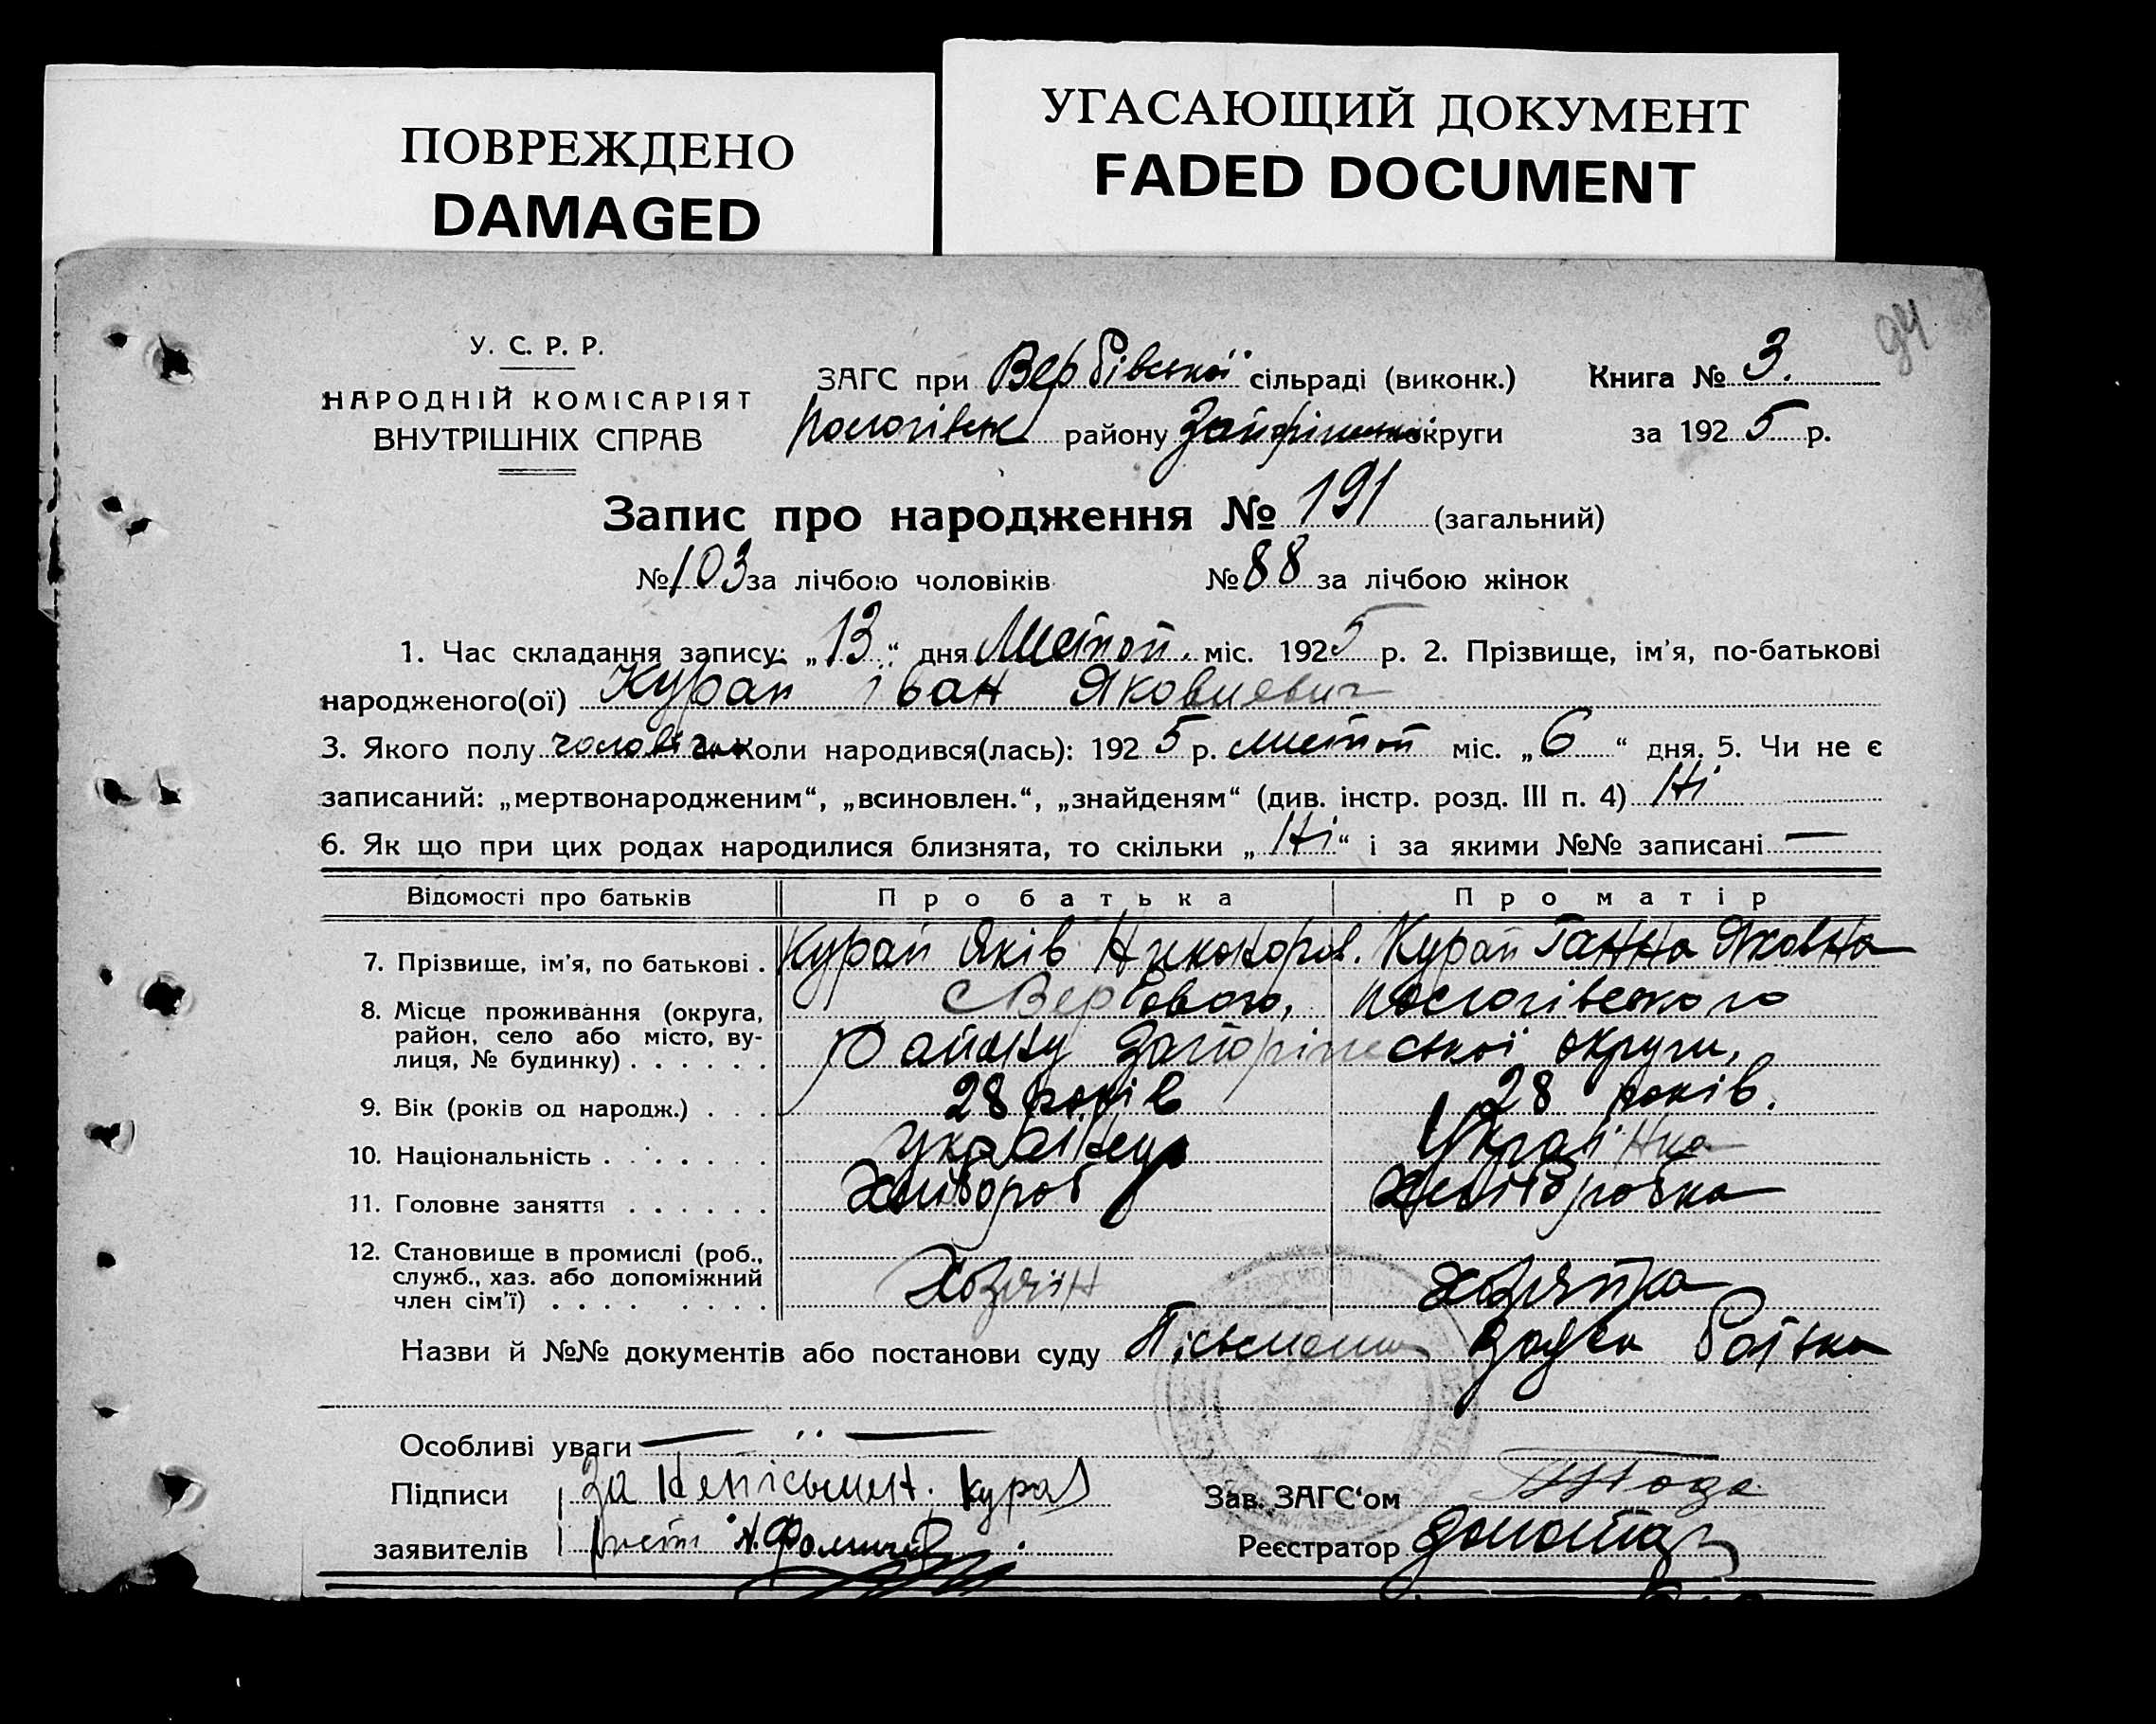 ПОВРЕЖДЕНО
DAMAGED
УГАСАЮЩИЙ ДОКУМЕНТ
FADED DOCUMENT
94
У. С. Р. Р.
НАРОДНІЙ КОМІСАРІЯТ
ВНУТРІШНІХ СПРАВ
ЗАГС при Вербівської сільраді (виконк.)
району округи
Книга № 3.
за 1925 р.
Запис про народження № 191 (загальний)
№ 103 за лічбою чоловіків № 88 за лічбою жінок
1. Час складання запису: „13“ дня Листоп. міс. 1925 р. 2. Прізвище, ім'я, по-батькові
народженого(ої) Курай Іван Яковлевич
3. Якого полу Коли народився(лась): 1925 р. листоп міс. „6“ дня. 5. Чи не є
записаний: „мертвонародженим“, „всиновлен.“, „знайденям“ (див. інстр. розд. III п. 4) Ні
6. Як що при цих родах народилися близнята, то скільки „Ні“ і за якими №№ записані —
Відомості про батьків Про батька Про матір
7. Прізвище, ім'я, по батькові . Курай Яків Никоноров. Курай Ганна Яковна
8. Місце проживання (округа, район, село або місто, вулиця, № будинку) . . . . . . с Вербового, Пологівского
району Запоріжської округи,
9. Вік (років од народж.) . . . 28 років 28 років.
10. Національність . . . . . . . Українець Українка
11. Головне заняття . . . . . . Хлібороб Хліборобка
12. Становище в промислі (роб., служб., хаз. або допоміжний член сім'ї) . . . . . . . . Хозяїн Хозяйка
Назви й №№ документів або постанови суду Пісьменна заява батька
Особливі уваги — „ —
Підписи За непісьмен. Курай
заявителів
Зав. ЗАГС'ом
Реєстратор